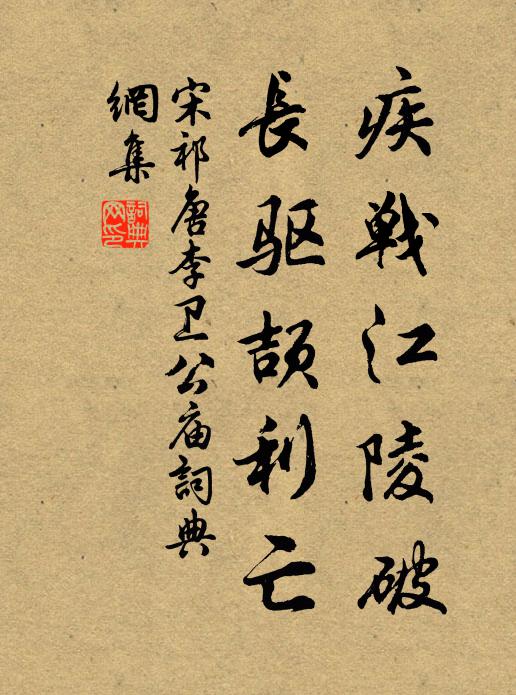 疾戦江陵破
長驱颉利亡
宋祁唐李卫公庙詞典
網集
詞典
网印